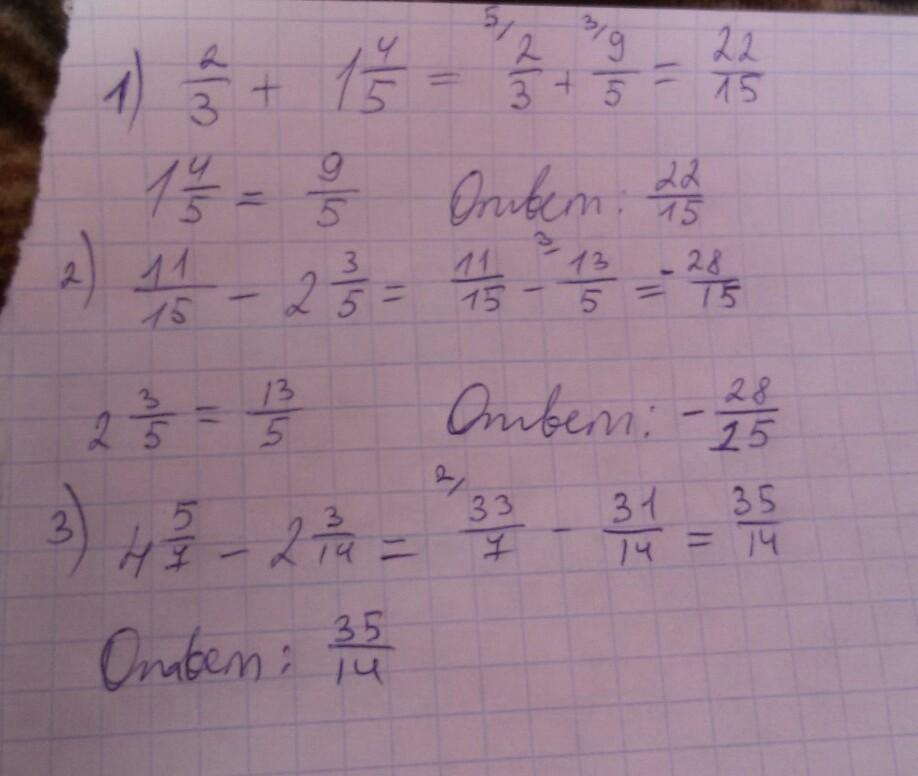 1) 2/3 + 1 4/5 = 5/ 2/3 + 3/ 9/5 = 22/15
1 4/5 = 9/5 Ответ: 22/15
2) 11/15 - 2 3/5 = 11/15 - 3/ 13/5 = - 28/15
2 3/5 = 13/5 Ответ: - 28/15
3) 4 5/7 - 2 3/14 = 2/ 33/7 - 31/14 = 35/14
Ответ: 35/14